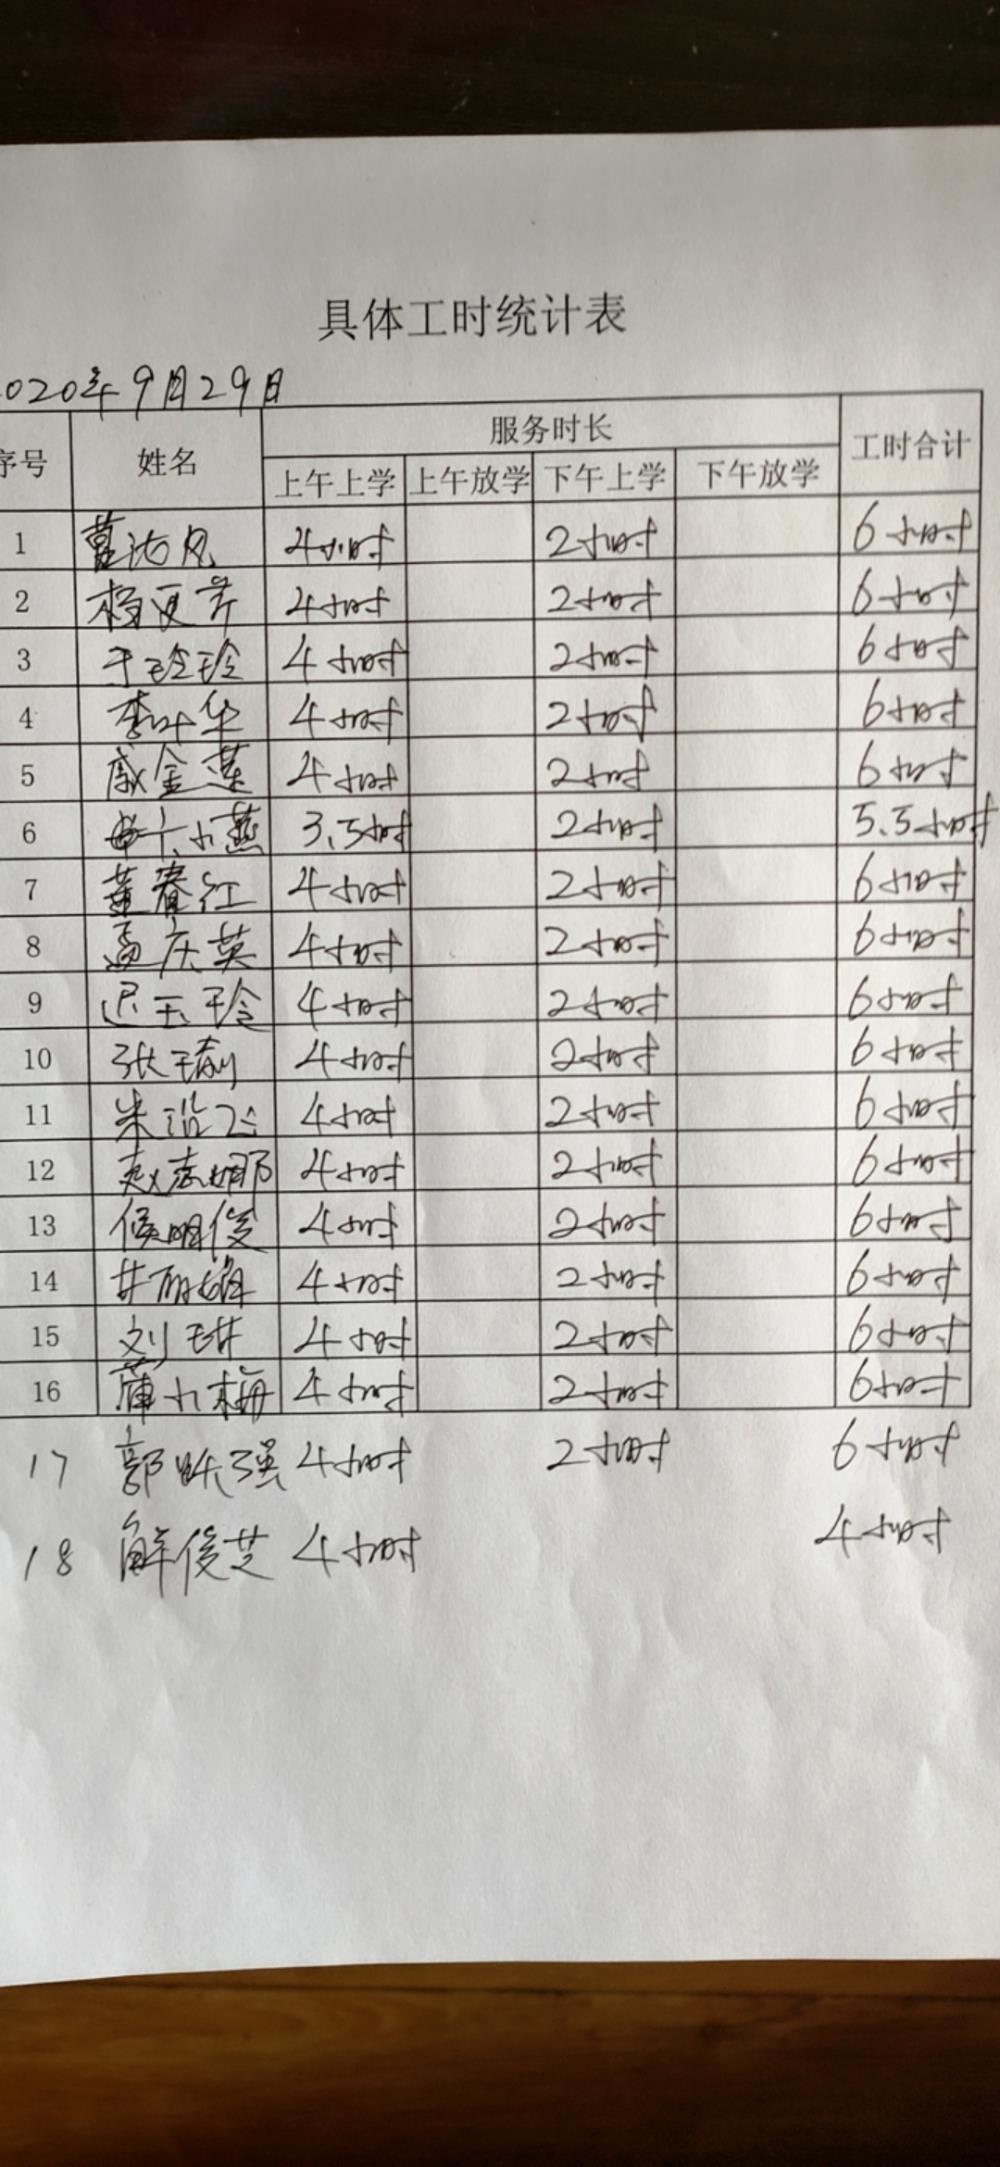 具体工时统计表
2020年9月29日
序号 姓名 服务时长 工时合计
上午上学 上午放学 下午上学 下午放学
1 4小时 2小时 6小时
2 杨夏芹 4小时 2小时 6小时
3 于玲玲 4小时 2小时 6小时
4 李叶华 4小时 2小时 6小时
5 戚金莲 4小时 2小时 6小时
6 小燕 3.5小时 2小时 5.5小时
7 董春江 4小时 2小时 6小时
8 孟庆英 4小时 2小时 6小时
9 迟玉玲 4小时 2小时 6小时
10 张 4小时 2小时 6小时
11 朱沿飞 4小时 2小时 6小时
12 赵志娜 4小时 2小时 6小时
13 侯明俊 4小时 2小时 6小时
14 井丽娟 4小时 2小时 6小时
15 刘琪 4小时 2小时 6小时
16 小梅 4小时 2小时 6小时
17 郭跃强 4小时 2小时 6小时
18 解俊芝 4小时 4小时